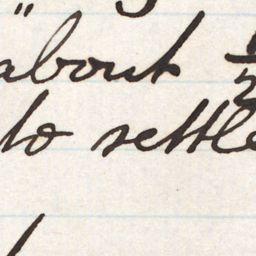 about
to settle